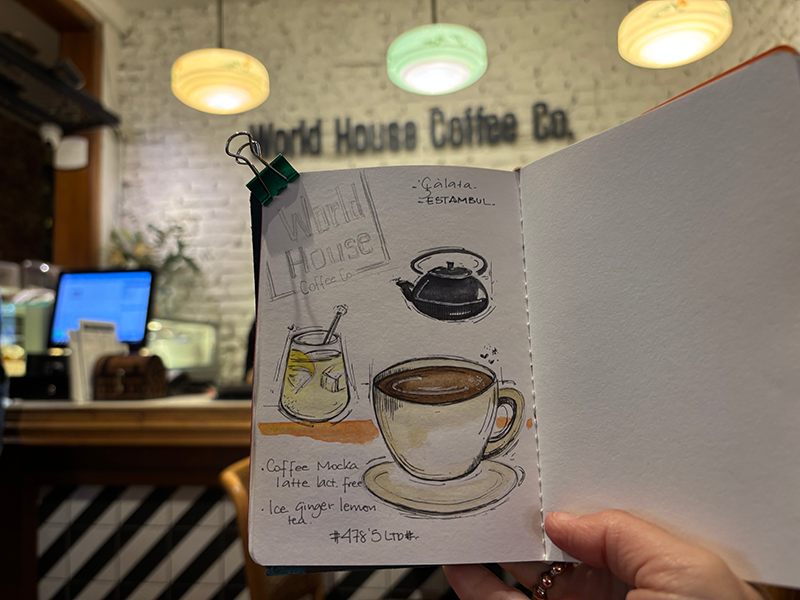 World House Coffee Co.
World
House
Coffee Co
- Gálata.
- ESTAMBUL.
· Coffee Mocka
latte lact. free
· Ice ginger lemon
tea.
#478'5 LTD#